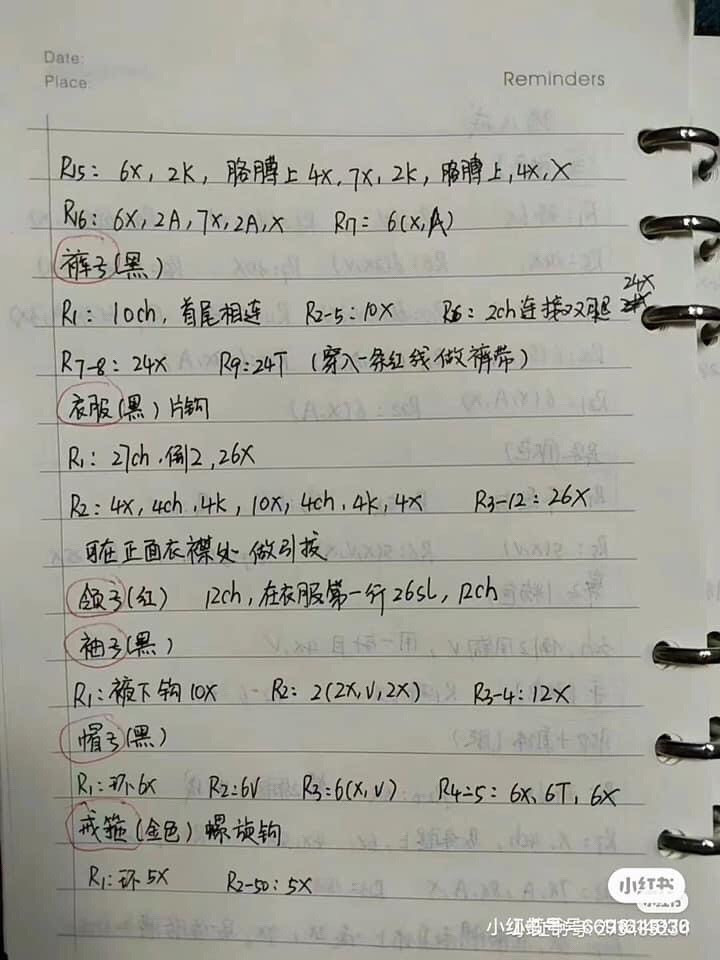 Date:
Place:
Reminders
R15: 6X, 2K, 胳膊上4X, 7X, 2K, 胳膊上, 4X, X
R16: 6X, 2A, 7X, 2A, X R17: 6(X, A)
裤子(黑)
R1: 10ch, 首尾相连 R2-5: 10X R6: 2ch连接双腿 24X
R7-8: 24X R9: 24T (穿入一条红线做裤带)
衣服(黑)片钩
R1: 27ch, 倒2, 26X
R2: 4X, 4ch, 4K, 10X, 4ch, 4K, 4X R3-12: 26X
再在正面衣襟处做引拔
领子(红) 12ch, 在衣服第一行26sl, 12ch
袖子(黑)
R1: 腋下钩10X R2: 2(2X, V, 2X) R3-4: 12X
帽子(黑)
R1: 环6X R2: 6V R3: 6(X, V) R4-5: 6X, 6T, 6X
戒箍(金色) 螺旋钩
R1: 环5X R2-50: 5X
小红书
小红书号